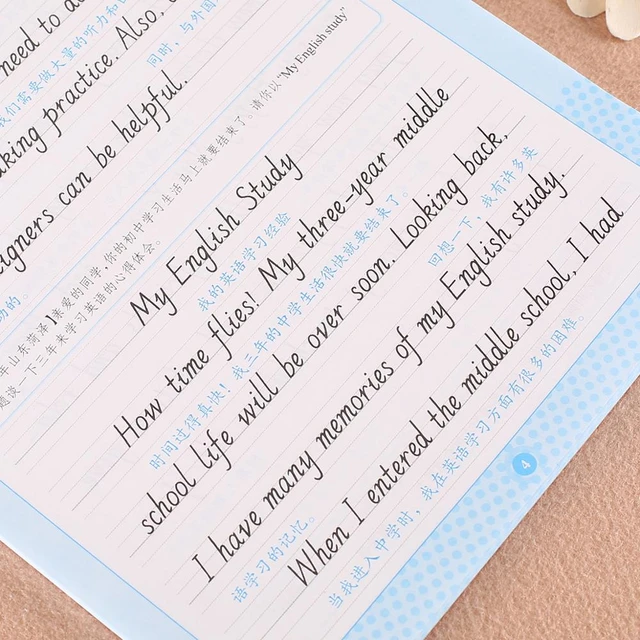 need to do
我们需要做大量的听力和
aking practice. Also,
同时，与外国
eigners can be helpful.
助的。
年山东菏泽】亲爱的同学，你的初中学习生活马上就要结束了。请你以“My English study”
谈一下三年来学习英语的心得体会。
My English Study
我的英语学习经验
How time flies! My three-year middle
时间过得真快！我三年的中学生活很快就要结束了。
school life will be over soon. Looking back,
回想一下，我有许多英
I have many memories of my English study.
语学习的记忆。
When I entered the middle school, I had
当我进入中学时，我在英语学习方面有很多的困难。
4